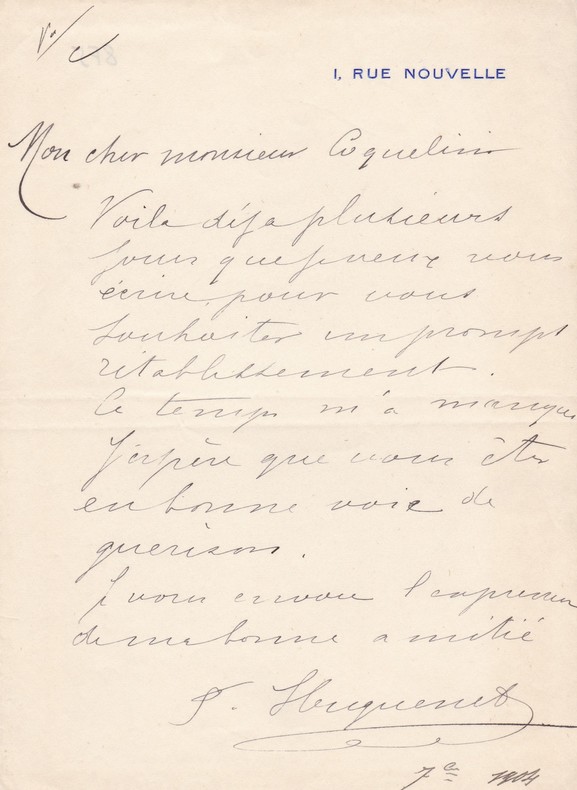 1, RUE NOUVELLE
Mon cher monsieur Coquelin
Voila déja plusieurs
jours que je veux vous
écrire pour vous
souhaiter un prompt
rétablissement.
Le temps m'a manqué
J'espère que vous êtes
en bonne voie de
guerison.
Je vous envoie l'expression
de ma bonne amitié
F. Huguenet
7e 1904